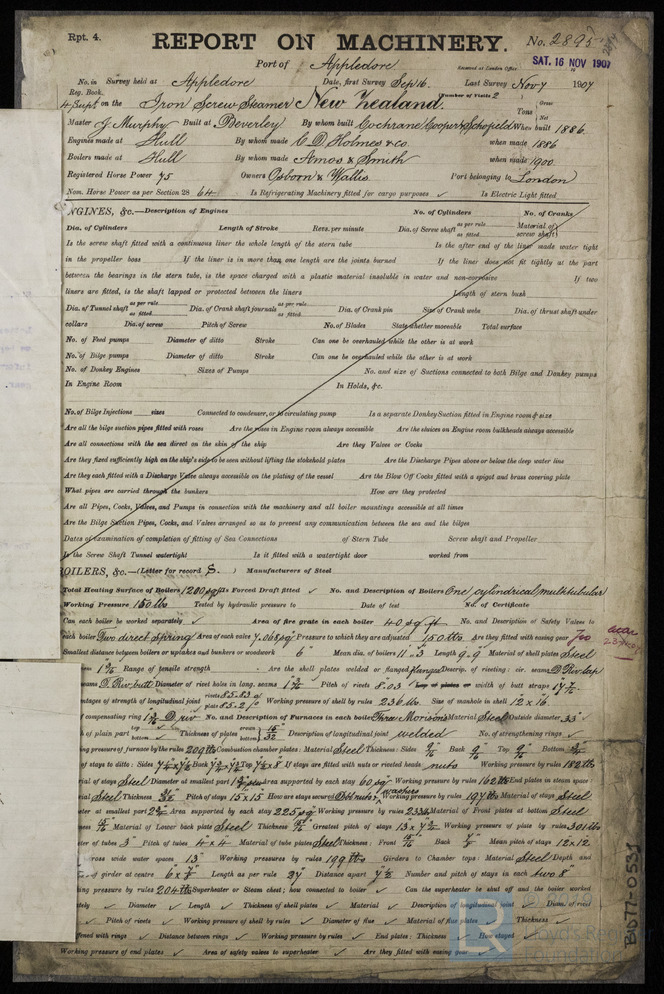 Rpt. 4.
REPORT ON MACHINERY.
No. 2895
Port of Appledore
Received at London Office
SAT. 16 NOV 1907
No. in Survey held at Appledore Date, first Survey Sep 16 Last Survey Nov 7 1907
Reg. Book.
(Number of Visits 2
on the Iron Screw Steamer New Zealand.
Tons { Gross
Net
Master J. Murphy Built at Beverley By whom built Cochrane Cooper & Schofield When built 1886
Engines made at Hull By whom made C. D. Holmes & Co. when made 1886
Boilers made at Hull By whom made Amos & Smith when made 1900
Registered Horse Power 75 Owners Osborn & Wallis Port belonging to London
Nom. Horse Power as per Section 28 64 Is Refrigerating Machinery fitted for cargo purposes ✓ Is Electric Light fitted
NGINES, &c.—Description of Engines No. of Cylinders No. of Cranks
Dia. of Cylinders Length of Stroke Revs. per minute Dia. of Screw shaft as per rule as fitted Material of screw shaft
Is the screw shaft fitted with a continuous liner the whole length of the stern tube Is the after end of the liner made water tight
in the propeller boss If the liner is in more than one length are the joints burned If the liner does not fit tightly at the part
between the bearings in the stern tube, is the space charged with a plastic material insoluble in water and non-corrosive If two
liners are fitted, is the shaft lapped or protected between the liners Length of stern bush
Dia. of Tunnel shaft as per rule as fitted Dia. of Crank shaft journals as per rule as fitted Dia. of Crank pin Size of Crank webs Dia. of thrust shaft under
collars Dia. of screw Pitch of Screw No. of Blades State whether moveable Total surface
No. of Feed pumps Diameter of ditto Stroke Can one be overhauled while the other is at work
No. of Bilge pumps Diameter of ditto Stroke Can one be overhauled while the other is at work
No. of Donkey Engines Sizes of Pumps No. and size of Suctions connected to both Bilge and Donkey pumps
In Engine Room In Holds, &c.
No. of Bilge Injections sizes Connected to condenser, or to circulating pump Is a separate Donkey Suction fitted in Engine room & size
Are all the bilge suction pipes fitted with roses Are the roses in Engine room always accessible Are the sluices on Engine room bulkheads always accessible
Are all connections with the sea direct on the skin of the ship Are they Valves or Cocks
Are they fixed sufficiently high on the ship's side to be seen without lifting the stokehold plates Are the Discharge Pipes above or below the deep water line
Are they each fitted with a Discharge Valve always accessible on the plating of the vessel Are the Blow Off Cocks fitted with a spigot and brass covering plate
What pipes are carried through the bunkers How are they protected
Are all Pipes, Cocks, Valves, and Pumps in connection with the machinery and all boiler mountings accessible at all times
Are the Bilge Suction Pipes, Cocks, and Valves arranged so as to prevent any communication between the sea and the bilges
Dates of examination of completion of fitting of Sea Connections of Stern Tube Screw shaft and Propeller
Is the Screw Shaft Tunnel watertight Is it fitted with a watertight door worked from
OILERS, &c.—(Letter for record S. ) Manufacturers of Steel
Total Heating Surface of Boilers 1200 sq ft Is Forced Draft fitted ✓ No. and Description of Boilers One cylindrical multitubular
Working Pressure 150 lbs Tested by hydraulic pressure to Date of test No. of Certificate
Can each boiler be worked separately ✓ Area of fire grate in each boiler 40 sq ft No. and Description of Safety Valves to
each boiler Two direct spring Area of each valve 7.068 sq" Pressure to which they are adjusted 150 lbs Are they fitted with easing gear
Smallest distance between boilers or uptakes and bunkers or woodwork 6" Mean dia. of boilers 11'.3 Length 9.9 Material of shell plates Steel
Range of tensile strength Are the shell plates welded or flanged flanged Descrip. of riveting: cir. seams D. Riv lap
seams T. Riv. butt Diameter of rivet holes in long. seams Pitch of rivets 8.03 Lap of plates or width of butt straps
entages of strength of longitudinal joint rivets 85.83 plate 85.21 Working pressure of shell by rules 236 lbs Size of manhole in shell 12" x 16"
of compensating ring D. riv No. and Description of Furnaces in each boiler Three Morisons Material Steel Outside diameter 33"
of plain part top bottom Thickness of plates crown bottom 15/32 Description of longitudinal joint welded No. of strengthening rings ✓
ing pressure of furnace by the rules 209 lbs Combustion chamber plates: Material Steel Thickness: Sides 9/16 Back 9/16 Top 9/16 Bottom
of stays to ditto: Sides Back Top If stays are fitted with nuts or riveted heads nuts Working pressure by rules 182 lbs
rial of stays Steel Diameter at smallest part Area supported by each stay 60 sq" Working pressure by rules 162 lbs End plates in steam space:
rial Steel Thickness Pitch of stays 15" x 15" How are stays secured Dbl nuts & washers Working pressure by rules 197 lbs Material of stays Steel
eter at smallest part Area supported by each stay 225 sq" Working pressure by rules 233 lbs Material of Front plates at bottom Steel
ness Material of Lower back plate Steel Thickness Greatest pitch of stays Working pressure of plate by rules 301 lbs
ter of tubes 3" Pitch of tubes 4" x 4" Material of tube plates Steel Thickness: Front Back Mean pitch of stays 12 x 12
cross wide water spaces 13" Working pressures by rules 199 lbs Girders to Chamber tops: Material Steel Depth and
of girder at centre Length as per rule 27" Distance apart Number and pitch of stays in each two 8"
ing pressure by rules 204 lbs Superheater or Steam chest; how connected to boiler ✓ Can the superheater be shut off and the boiler worked
ately ✓ Diameter ✓ Length ✓ Thickness of shell plates ✓ Material ✓ Description of longitudinal joint ✓ Diam. of rivet
✓ Pitch of rivets ✓ Working pressure of shell by rules ✓ Diameter of flue ✓ Material of flue plates ✓ Thickness ✓
ffened with rings ✓ Distance between rings ✓ Working pressure by rules ✓ End plates: Thickness ✓ How stayed ✓
Working pressure of end plates ✓ Area of safety valves to superheater ✓ Are they fitted with easing gear ✓
LR
Lloyd's Register
Foundation